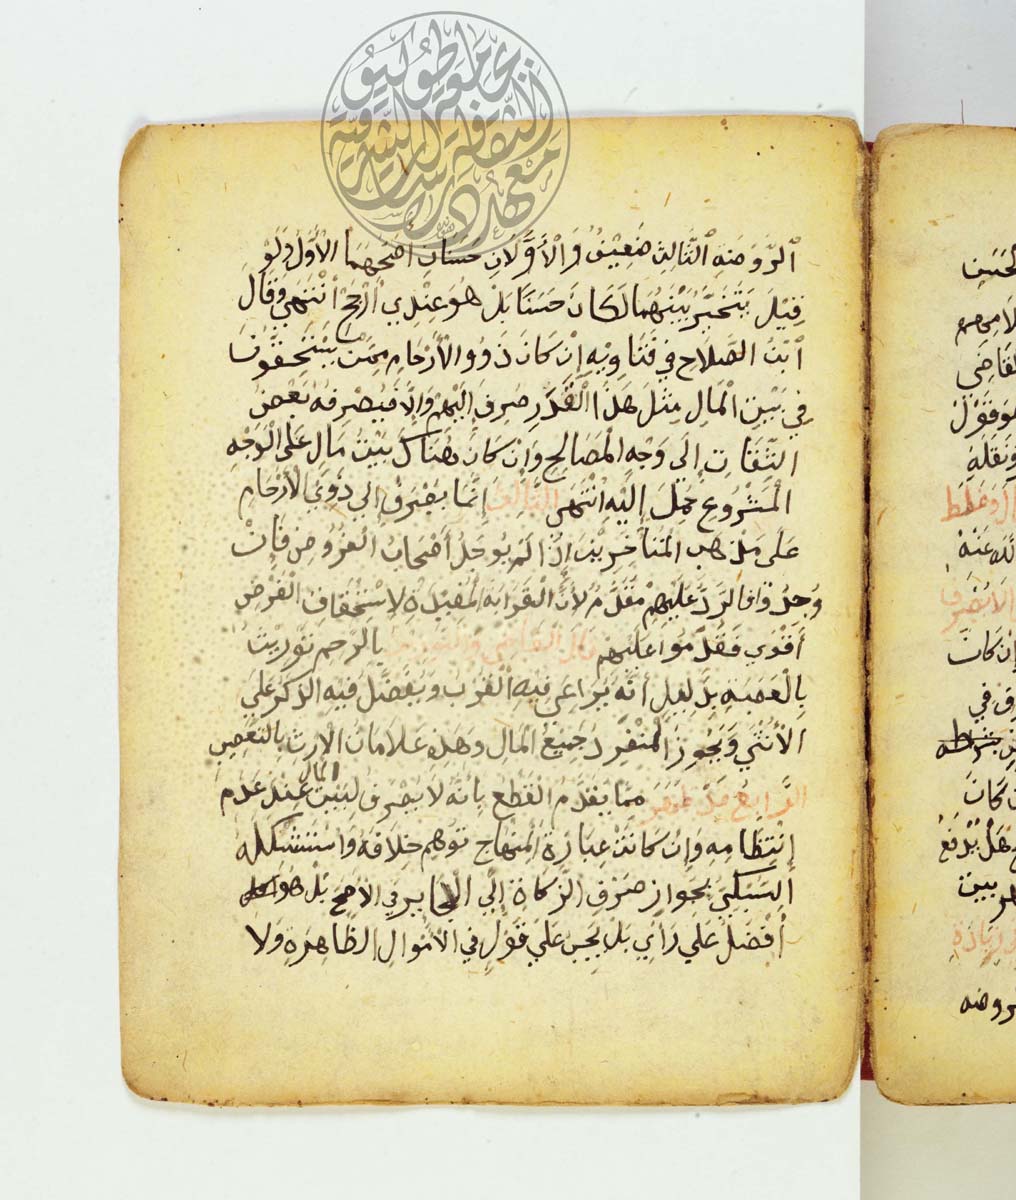 الروضة الثالث ضعيف والأولان حسنان أصحهما الأول ولو
قيل يتخير بينهما لكان حسنا بل هو عندي أرجح انتهى وقال
ابن الصلاح في فتاويه إن كان ذوو الأرحام ممن يستحقون
في بيت المال مثل هذا القدر صرف إليهم وإلا فيصرفه بعض
الثقات إلى وجه المصالح وإن كان هناك بيت مال على الوجه
المشروع حمل إليه انتهى الثالث إنما يصرف إلى ذوي الأرحام
على مذهب المتأخرين إذا لم يوجد أصحاب الفروض فإن
وجدوا فالرد عليهم مقدم لأن القرابة المفيدة لاستحقاق الفرض
أقوى فقدموا عليهم قال القاضي والتوريث بالرحم توريث
بالعصبة بدليل أنه يراعى فيه القرب ويفضل فيه الذكر على
الأنثى ويحوز المنفرد جميع المال وهذه علامات الإرث بالتعصيب
الرابع قد ظهر مما يقدم القطع بأنه لا يصرف لبيت المال عند عدم
انتظامه وإن كانت عبارة المنهاج توهم خلافه واستشكله
السبكي بجواز صرف الزكاة إلى الجاير في الأصح بل هو
أفضل على رأي بل يجب على قول في الأموال الظاهرة ولا
الحسين
القاضي
ونقله
إن كانت
ن كان
هل يدفع